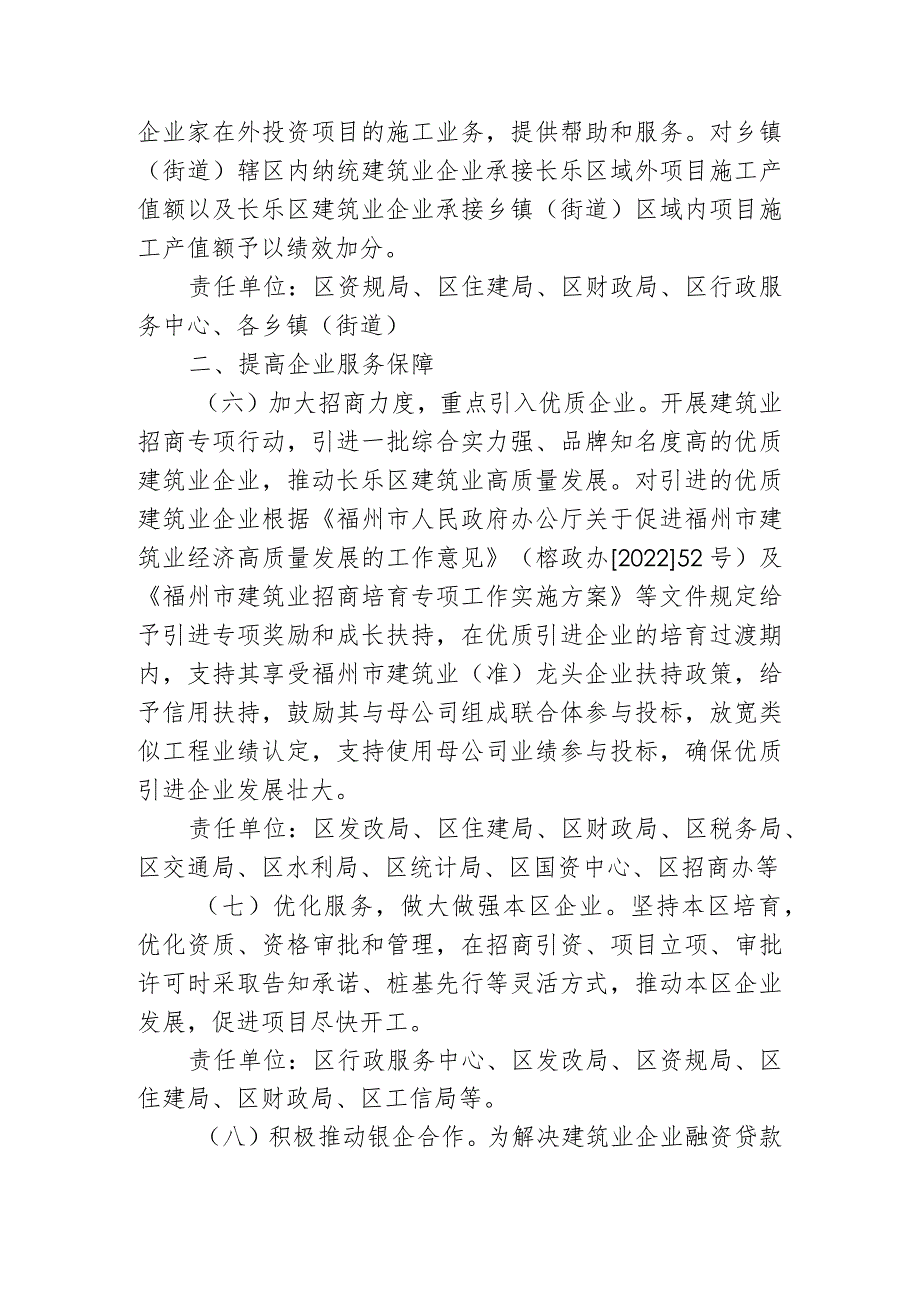 企业家在外投资项目的施工业务，提供帮助和服务。对乡镇
（街道）辖区内纳统建筑业企业承接长乐区域外项目施工产
值额以及长乐区建筑业企业承接乡镇（街道）区域内项目施
工产值额予以绩效加分。
责任单位：区资规局、区住建局、区财政局、区行政服
务中心、各乡镇（街道）
二、提高企业服务保障
（六）加大招商力度，重点引入优质企业。开展建筑业
招商专项行动，引进一批综合实力强、品牌知名度高的优质
建筑业企业，推动长乐区建筑业高质量发展。对引进的优质
建筑业企业根据《福州市人民政府办公厅关于促进福州市建
筑业经济高质量发展的工作意见》（榕政办[2022]52 号）及
《福州市建筑业招商培育专项工作实施方案》等文件规定给
予引进专项奖励和成长扶持，在优质引进企业的培育过渡期
内，支持其享受福州市建筑业（准）龙头企业扶持政策，给
予信用扶持，鼓励其与母公司组成联合体参与投标，放宽类
似工程业绩认定，支持使用母公司业绩参与投标，确保优质
引进企业发展壮大。
责任单位：区发改局、区住建局、区财政局、区税务局、
区交通局、区水利局、区统计局、区国资中心、区招商办等
（七）优化服务，做大做强本区企业。坚持本区培育，
优化资质、资格审批和管理，在招商引资、项目立项、审批
许可时采取告知承诺、桩基先行等灵活方式，推动本区企业
发展，促进项目尽快开工。
责任单位：区行政服务中心、区发改局、区资规局、区
住建局、区财政局、区工信局等。
（八）积极推动银企合作。为解决建筑业企业融资贷款